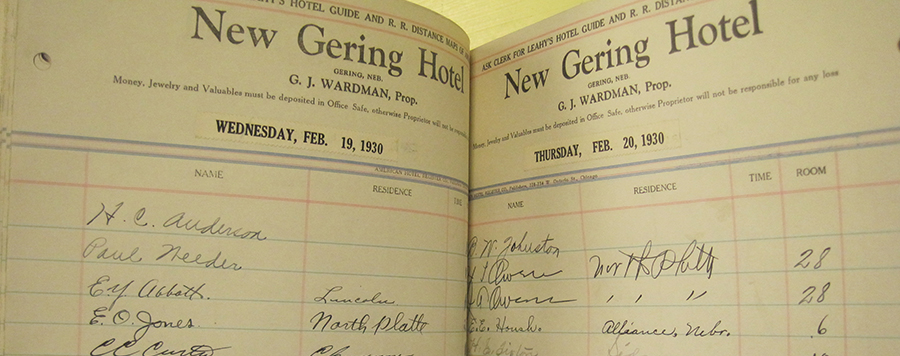 LEAHY'S HOTEL GUIDE AND R. R. DISTANCE MAPS OF
New Gering Hotel
GERING, NEB.
G. J. WARDMAN, Prop.
Money, Jewelry and Valuables must be deposited in Office Safe, otherwise Proprietor will not be responsible
WEDNESDAY, FEB. 19, 1930
AMERICAN HOTEL REGISTER CO.
NAME RESIDENCE TIME
H. C. Anderson
Paul Needer
E. Y. Abbott. Lincoln
E. O. Jones. North Platte
C C Curtis
ASK CLERK FOR LEAHY'S HOTEL GUIDE AND R. R. DISTANCE
New Gering Hotel
GERING, NEB.
G. J. WARDMAN, Prop.
Money, Jewelry and Valuables must be deposited in Office Safe, otherwise Proprietor will not be responsible for any loss
THURSDAY, FEB. 20, 1930
NAME RESIDENCE TIME ROOM
W. Johnston
Owens North Platte 28
Owens " " " 28
E. E. Housh. Alliance, Nebr. 6